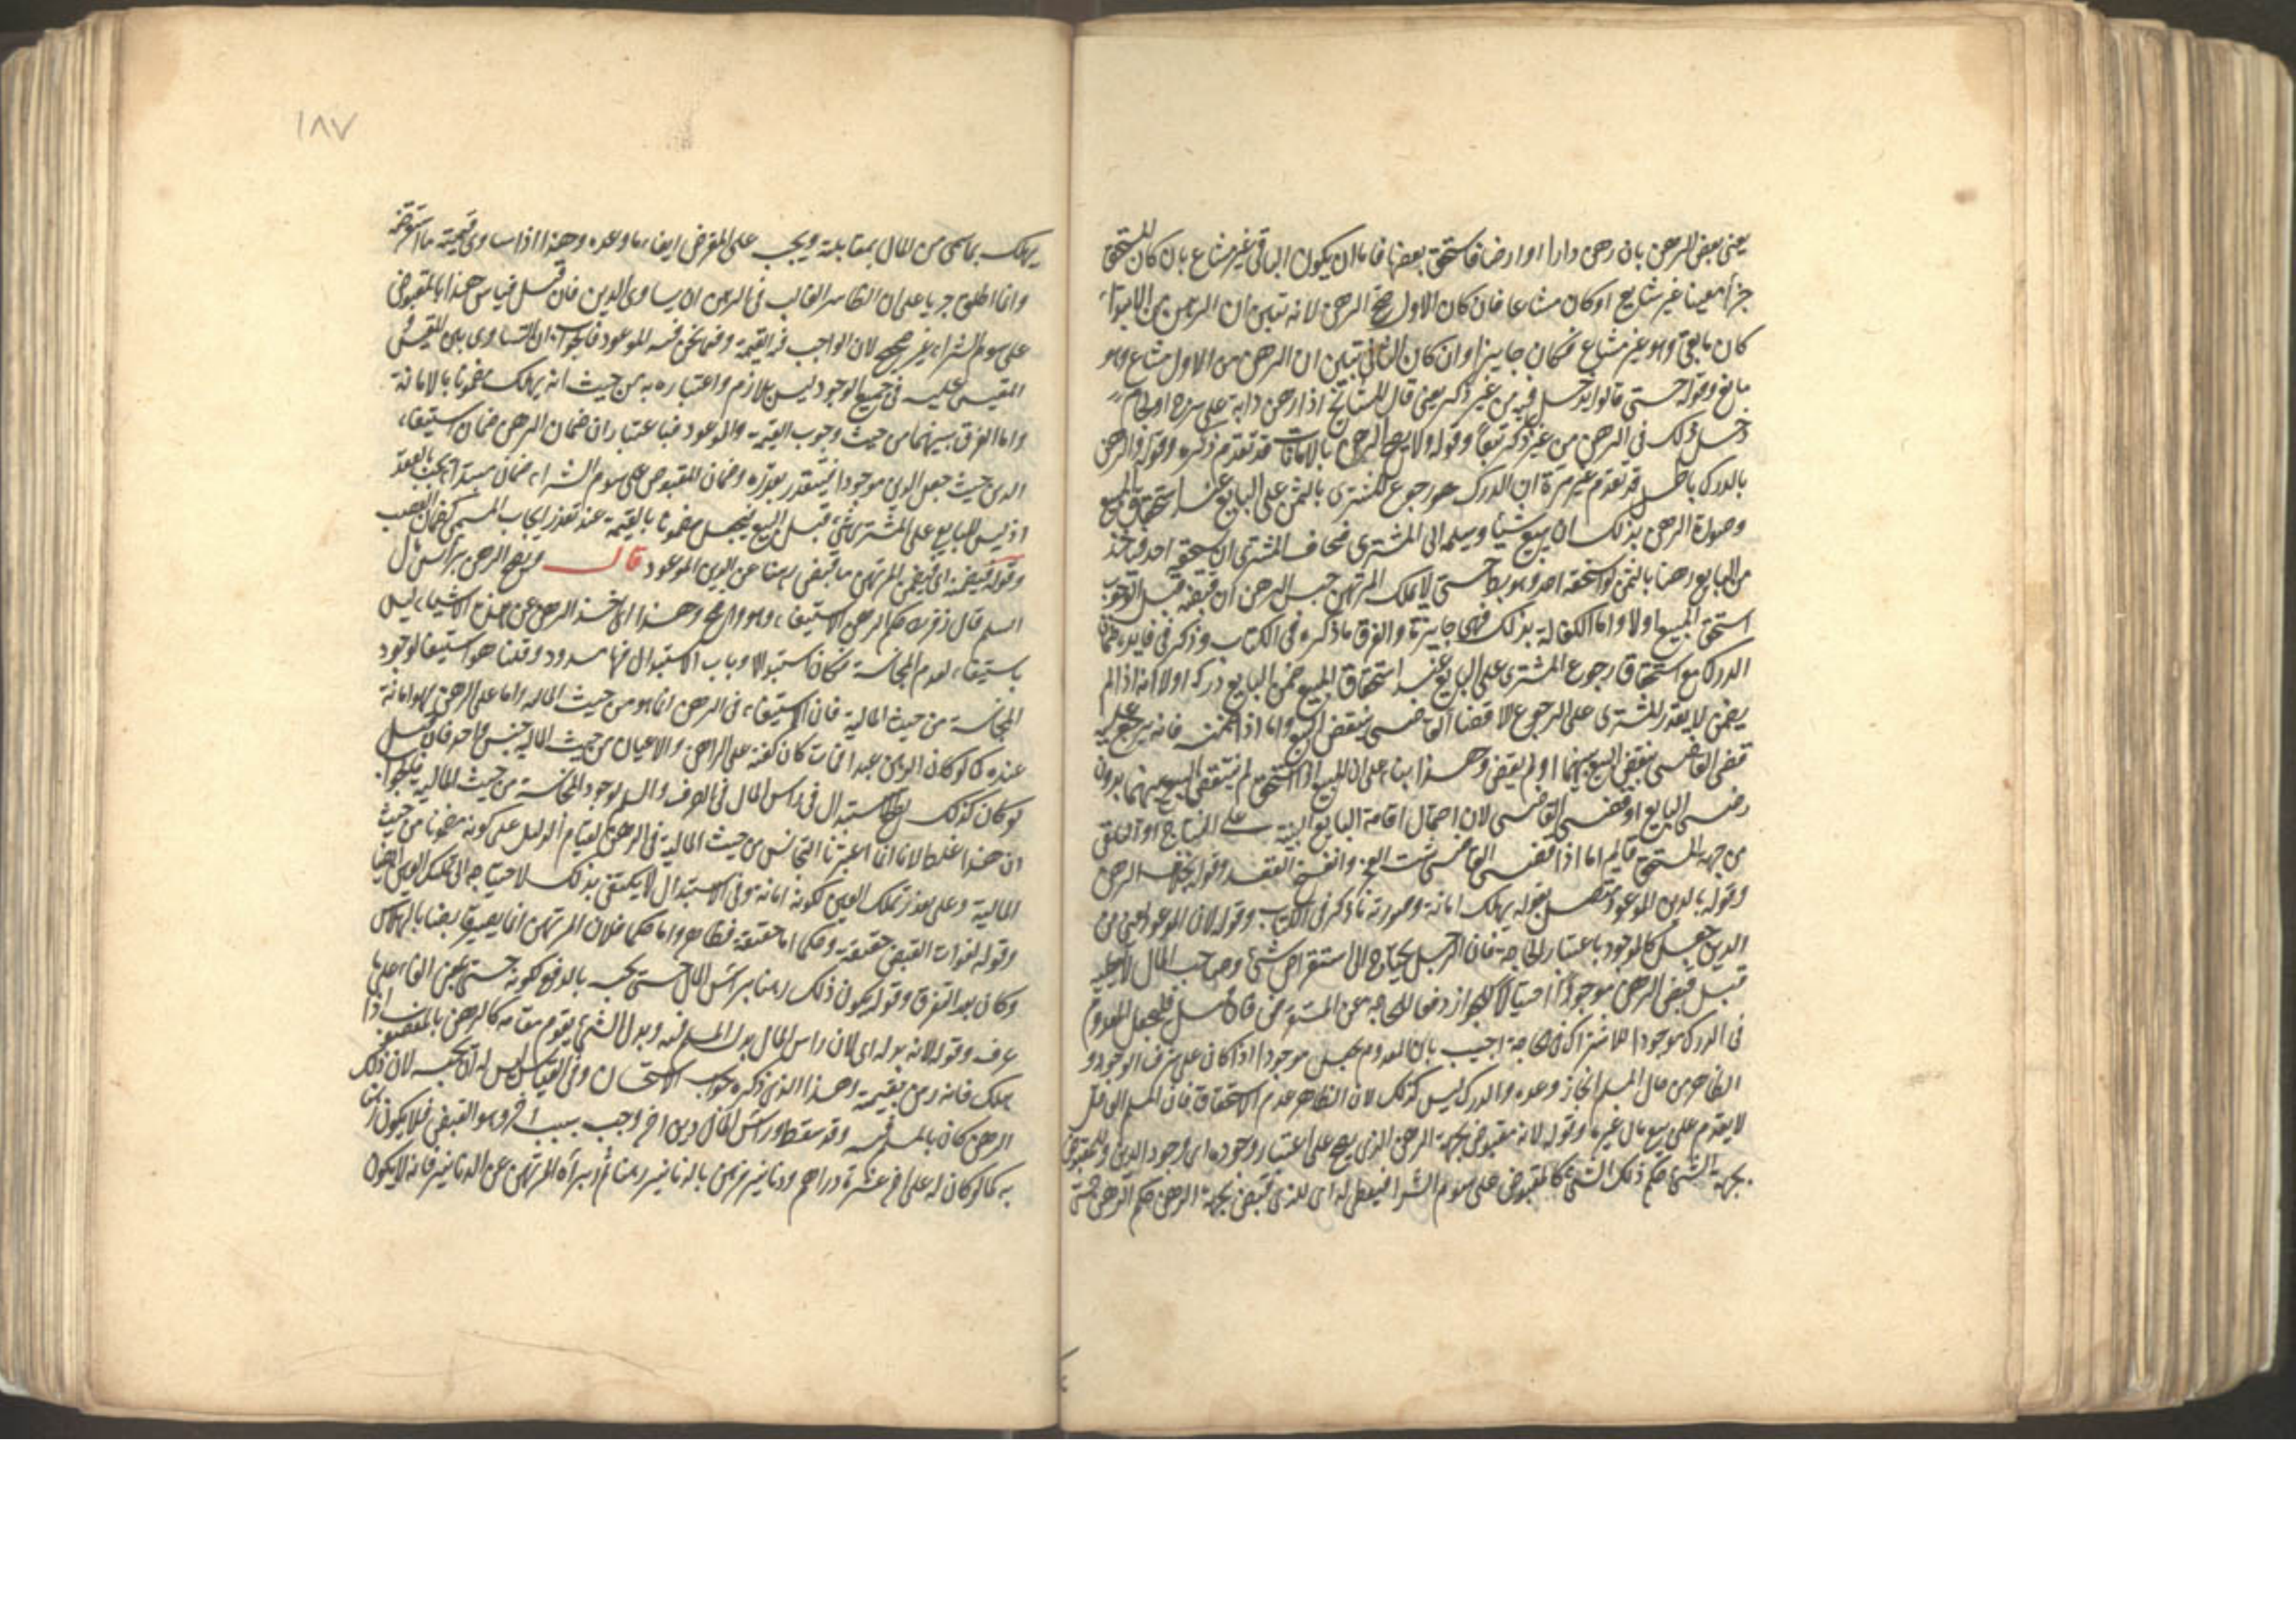 يعنى بعض الرهن بان رهن دارا او ارضا فاستحق بعضها فاما ان يكون الباقى غير مشاع بان كان المستحق
جزأ معينا غير شايع او كان مشاعا فان كان الاول صح الرهن لانه تبين ان الرهن من الابتداء
كان ما بقى وهو غير مشاع فكان جايزا وان كان الثانى تبين ان الرهن من الاول مشاع وهو
مانع وقوله حتى قالوا يدخل فيه من غير ذكر يعنى قال المشايخ اذا رهن دابة على سرج او لجام
دخل ذلك فى الرهن من غير ذكر تبعا وقوله ولا يصح الرهن بالامانات قد تقدم ذكره وقوله والرهن
بالدرك باطل قد تقدم غير مرة ان الدرك هو رجوع المشترى بالثمن على البايع عند استحقاق المبيع
وصورة الرهن بذلك ان يبيع شيأ ويسلمه الى المشترى فخاف المشترى ان يستحقه احد فياخذ
من البايع رهنا بالثمن لو استحقه احد وهو باطل حتى لا يملك المرتهن حبس الرهن ان قبضه قبل الوجوب
استحق المبيع اولا واما الكفالة بذلك فهى جايزة والفرق ما ذكره فى الكتاب وذكر فى فايدة ضمان
الدرك مع استحقاق رجوع المشترى على البايع عند استحقاق المبيع ضمن البايع دركه اولا انه اذا لم
يضمن لا يقدر المشترى على الرجوع الا قضا القاضى بنقض البيع واما اذا ضمنه فانه يرجع عليه
قضى القاضى بنقض البيع بينهما او لم يقض وهذا بناء على ان المبيع اذا استحق لم ينتقض البيع بينهما بدون
رضى البايع او قضى القاضى لان احتمال اقامة البايع البينة على النتاج او التلقى
من جهة المستحق قايم اما اذا قضى القاضى ثبت العجز وانفسخ العقد وقوله بخلاف الرهن
وقوله بالدين الموعود متصل بقوله يهلك امانة وصورته ما ذكر فى الكتاب وقوله لان الموعود اعنى من
الدين جعل كالموجود باعتبار الحاجة فان الرجل يحتاج الى استقراض شئ وصاحب المال لا يعطيه
قبل قبض الرهن موجودا احتيالا للجواز دفعا للحاجة عن المستقرض فان قيل فليجعل المعدوم
فى الدرك موجودا للاشتراك فى الحاجة اجيب بان المعدوم يجعل موجودا اذا كان على شرف الوجود و
الظاهر من حال المسلم انجاز وعده والدرك ليس كذلك لان الظاهر عدم الاستحقاق فان المسلم الى
لا يقدم على بيع مال غيره وقوله لانه مقبوض بجهة الرهن الذى يصح على اعتبار وجوده اى وجود الدين والمقبوض
بجهة الشئ حكم ذلك الشئ كالمقبوض على سوم الشراء فيعطى له اى للذى قبض بجهة الرهن حكم الرهن حتى
١٨٧
يهلك بما سمى من المال بمقابلته ويجب على المقرض ايفاء ما وعده وهذا اذا ساوى قيمته ما استقرضه
وانما اطلقه جريا على ان الظاهر الغالب فى الرهن ان يساوى الدين فان قيل قياس هذا بالمقبوض
على سوم الشراء غير صحيح لان الواجب فيه القيمة وفيما نحن فيه الموعود فالجواب ان التساوى بين المقيس و
المقيس عليه فى جميع الوجوه ليس بلازم واعتباره به من حيث انه يهلك مضمونا بالامانة
واما الفرق بينهما من حيث وجوب القيمة والموعود فباعتبار ان ضمان الرهن ضمان استيفاء
الدين حيث جعل الدين موجودا فيتقدر بقدره وضمان المقبوض على سوم الشراء ضمان مبتدأ بالعقد
اذ ليس للبايع على المشترى شئ قبل البيع فيجعل مضمونا بالقيمة عند تعذر ايجاب المسمى كضمان الغصب
وقوله فيضمنه اى فيضمن المرتهن ما قبض رهنا عن الدين الموعود قال ويصح الرهن براس مال
السلم قال زفر حكم الرهن الاستيفاء وهو واضح وهذا اى اخذ الرهن عن هذه الاشياء ليس
باستيفاء لعدم المجانسة فكان استبدالا وباب الاستبدال فيها مسدود وقلنا هو استيفا لوجود
المجانسة من حيث المالية فان الاستيفاء فى الرهن انما هو من حيث المالية واما عين الرهن فهو امانة
عنده كما لو كان الرهن عبدا فمات كان كفنه على الراهن والاعيان من حيث المالية جنس واحد فان قيل
لو كان كذلك لصح الاستبدال فى راس المال فى الصرف والسلم لوجود المجانسة من حيث المالية فالجواب
ان هذا غلط لانا انما اعتبرنا التجانس من حيث المالية فى الرهن لقيام الدليل على كونه مضمونا من حيث
المالية وعلى تعذر تملك العين لكونه امانة وفى الاستبدال لا يكتفى بذلك لاحتياجه الى تملك العين ايضا
وقوله لفوات القبض حقيقة وحكما اما حقيقة فظاهر واما حكما فلان المرتهن انما يصير قابضا بالهلاك
وكان بعد التفرق وقوله يكون ذلك رهنا براس المال حتى يحبسه بالدفع كونه حتى
عرف وقوله لانه بدله اى لان راس المال بدل المسلم فيه وبدل الشئ يقوم مقامه كالرهن بالمغصوب اذا
هلك فانه رهن بقيمته وهذا الذى ذكره جواب الاستحسان وفى القياس ليس له ان يحبسه لان ذلك
الرهن كان بالمسلم فيه وقد سقط وراس المال دين اخر وجب بسبب اخر وهو القبض فلا يكون رهنا
به كما لو كان له على اخر عشرة دراهم ودنانير فرهن بالدنانير رهنا ثم ابرأه المرتهن عن الدنانير فانه لا يكون